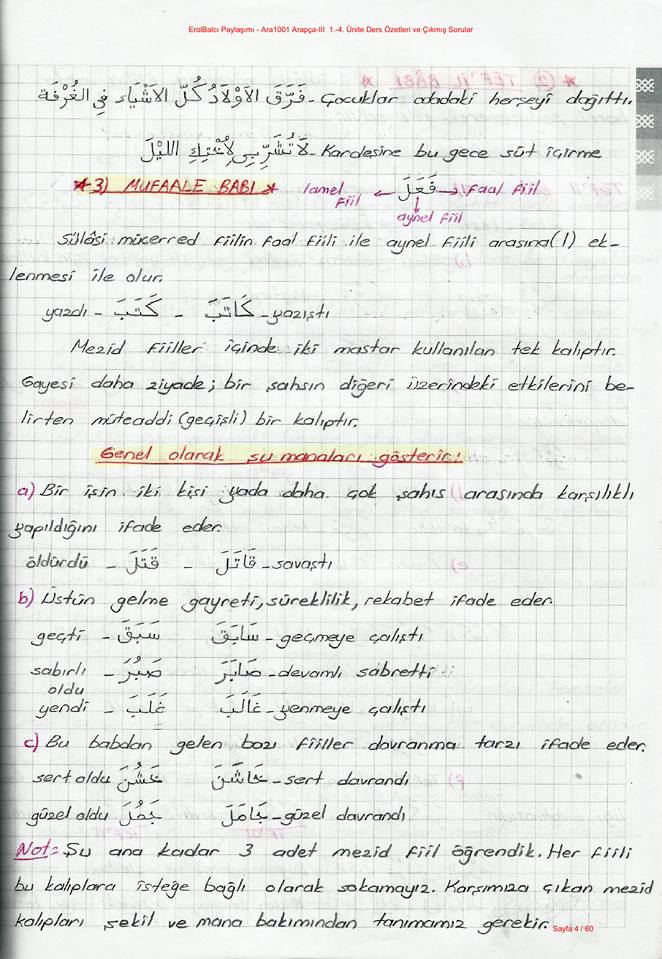 ErolBalcı Paylaşımı - Ara1001 Arapça-III 1.-4. Ünite Ders Özetleri ve Çıkmış Sorular
فَرَّقَ الاَوْلاَدُ كُلَّ الاَشْيَاء فِي الغُرْفَة - Çocuklar odadaki herşeyi dağıttı.
لاَ تُشَرِّبِي لِأُخْتِكِ اللَيْلَ - Kardeşine bu gece süt içirme
* 3) MUFAALE BABI * lamel fiil ← فَعَلَ → faal fiil
aynel fiil
Sülâsi mücerred fiilin faal fiili ile aynel fiili arasına (ا) ek-
lenmesi ile olur.
yazdı - كَتَبَ - كَاتَبَ - yazıştı
Mezid fiiller içinde iki mastar kullanılan tek kalıptır.
Gayesi daha ziyade; bir şahsın diğeri üzerindeki etkilerini be-
lirten müteaddi (geçişli) bir kalıptır.
Genel olarak şu manaları gösterir:
a) Bir işin iki kişi yada daha çok şahıs arasında karşılıklı
yapıldığını ifade eder.
öldürdü - قَتَلَ - قَاتَلَ - savaştı
b) Üstün gelme gayreti, süreklilik, rekabet ifade eder.
geçti - سَبَقَ سَابَقَ - geçmeye çalıştı
sabırlı oldu - صَبُرَ صَابَرَ - devamlı sabretti
yendi - غَلَبَ غَالَبَ - yenmeye çalıştı
c) Bu babdan gelen bazı fiiller davranma tarzı ifade eder.
sert oldu خَشُنَ خَاشَنَ - sert davrandı
güzel oldu جَمُلَ جَامَلَ - güzel davrandı
Not:= Şu ana kadar 3 adet mezid fiil öğrendik. Her fiili
bu kalıplara isteğe bağlı olarak sokamayız. Karşımıza çıkan mezid
kalıpları şekil ve mana bakımından tanımamız gerekir.
Sayfa 4 / 60